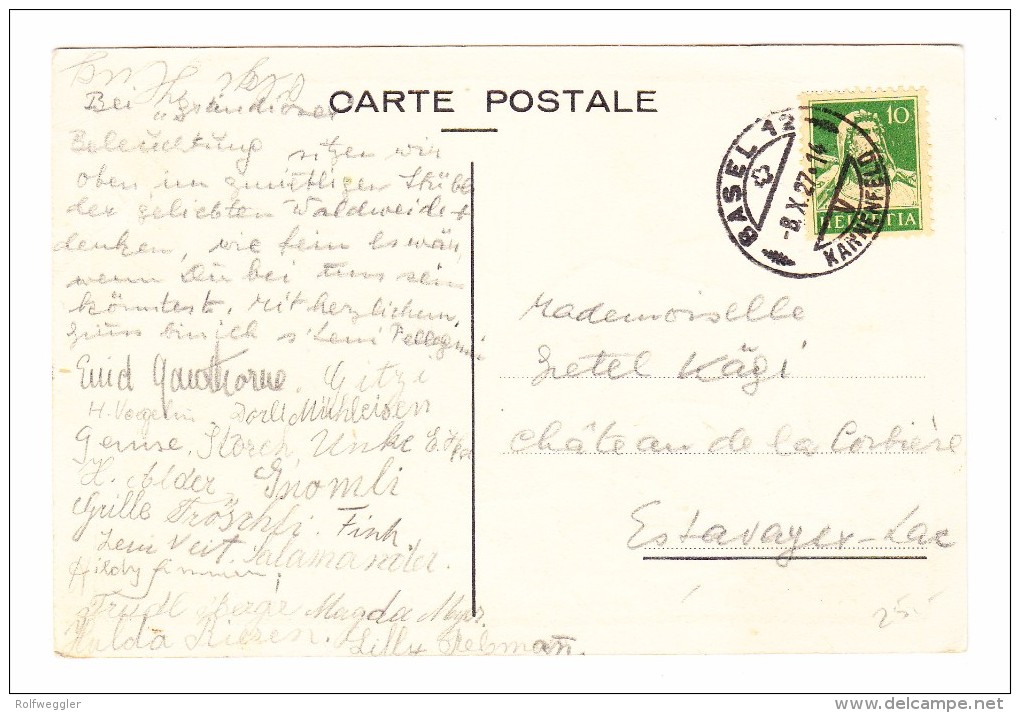 CARTE POSTALE
10
HELVETIA
BASEL 12
-8.X.27-14
V
KANNENFELD
Bei "grandioser
Beleuchtung sitzen wir
oben im gemütlichen Stübli
der geliebten Waldweide &
denken, wie fein es wär,
wenn Du bei uns sein
könntest. Mit herzlichem
Gruss bin ich s'Leni Pellegrini
Enid Gawthorne. Gitzi
H. Vogelin Dorli Mühleisen
Gemse. Storch, Unke
H. Alder, Gnomli
Grille Fröschli. Fink
Leni Veit. Salamander.
Trudl Magda
Hulda Lilly
Mademoiselle
Gretel Kägi
Château de la Corbière
Estavayer-Lac
25.-
Rolfweggler
www.delcampe.net